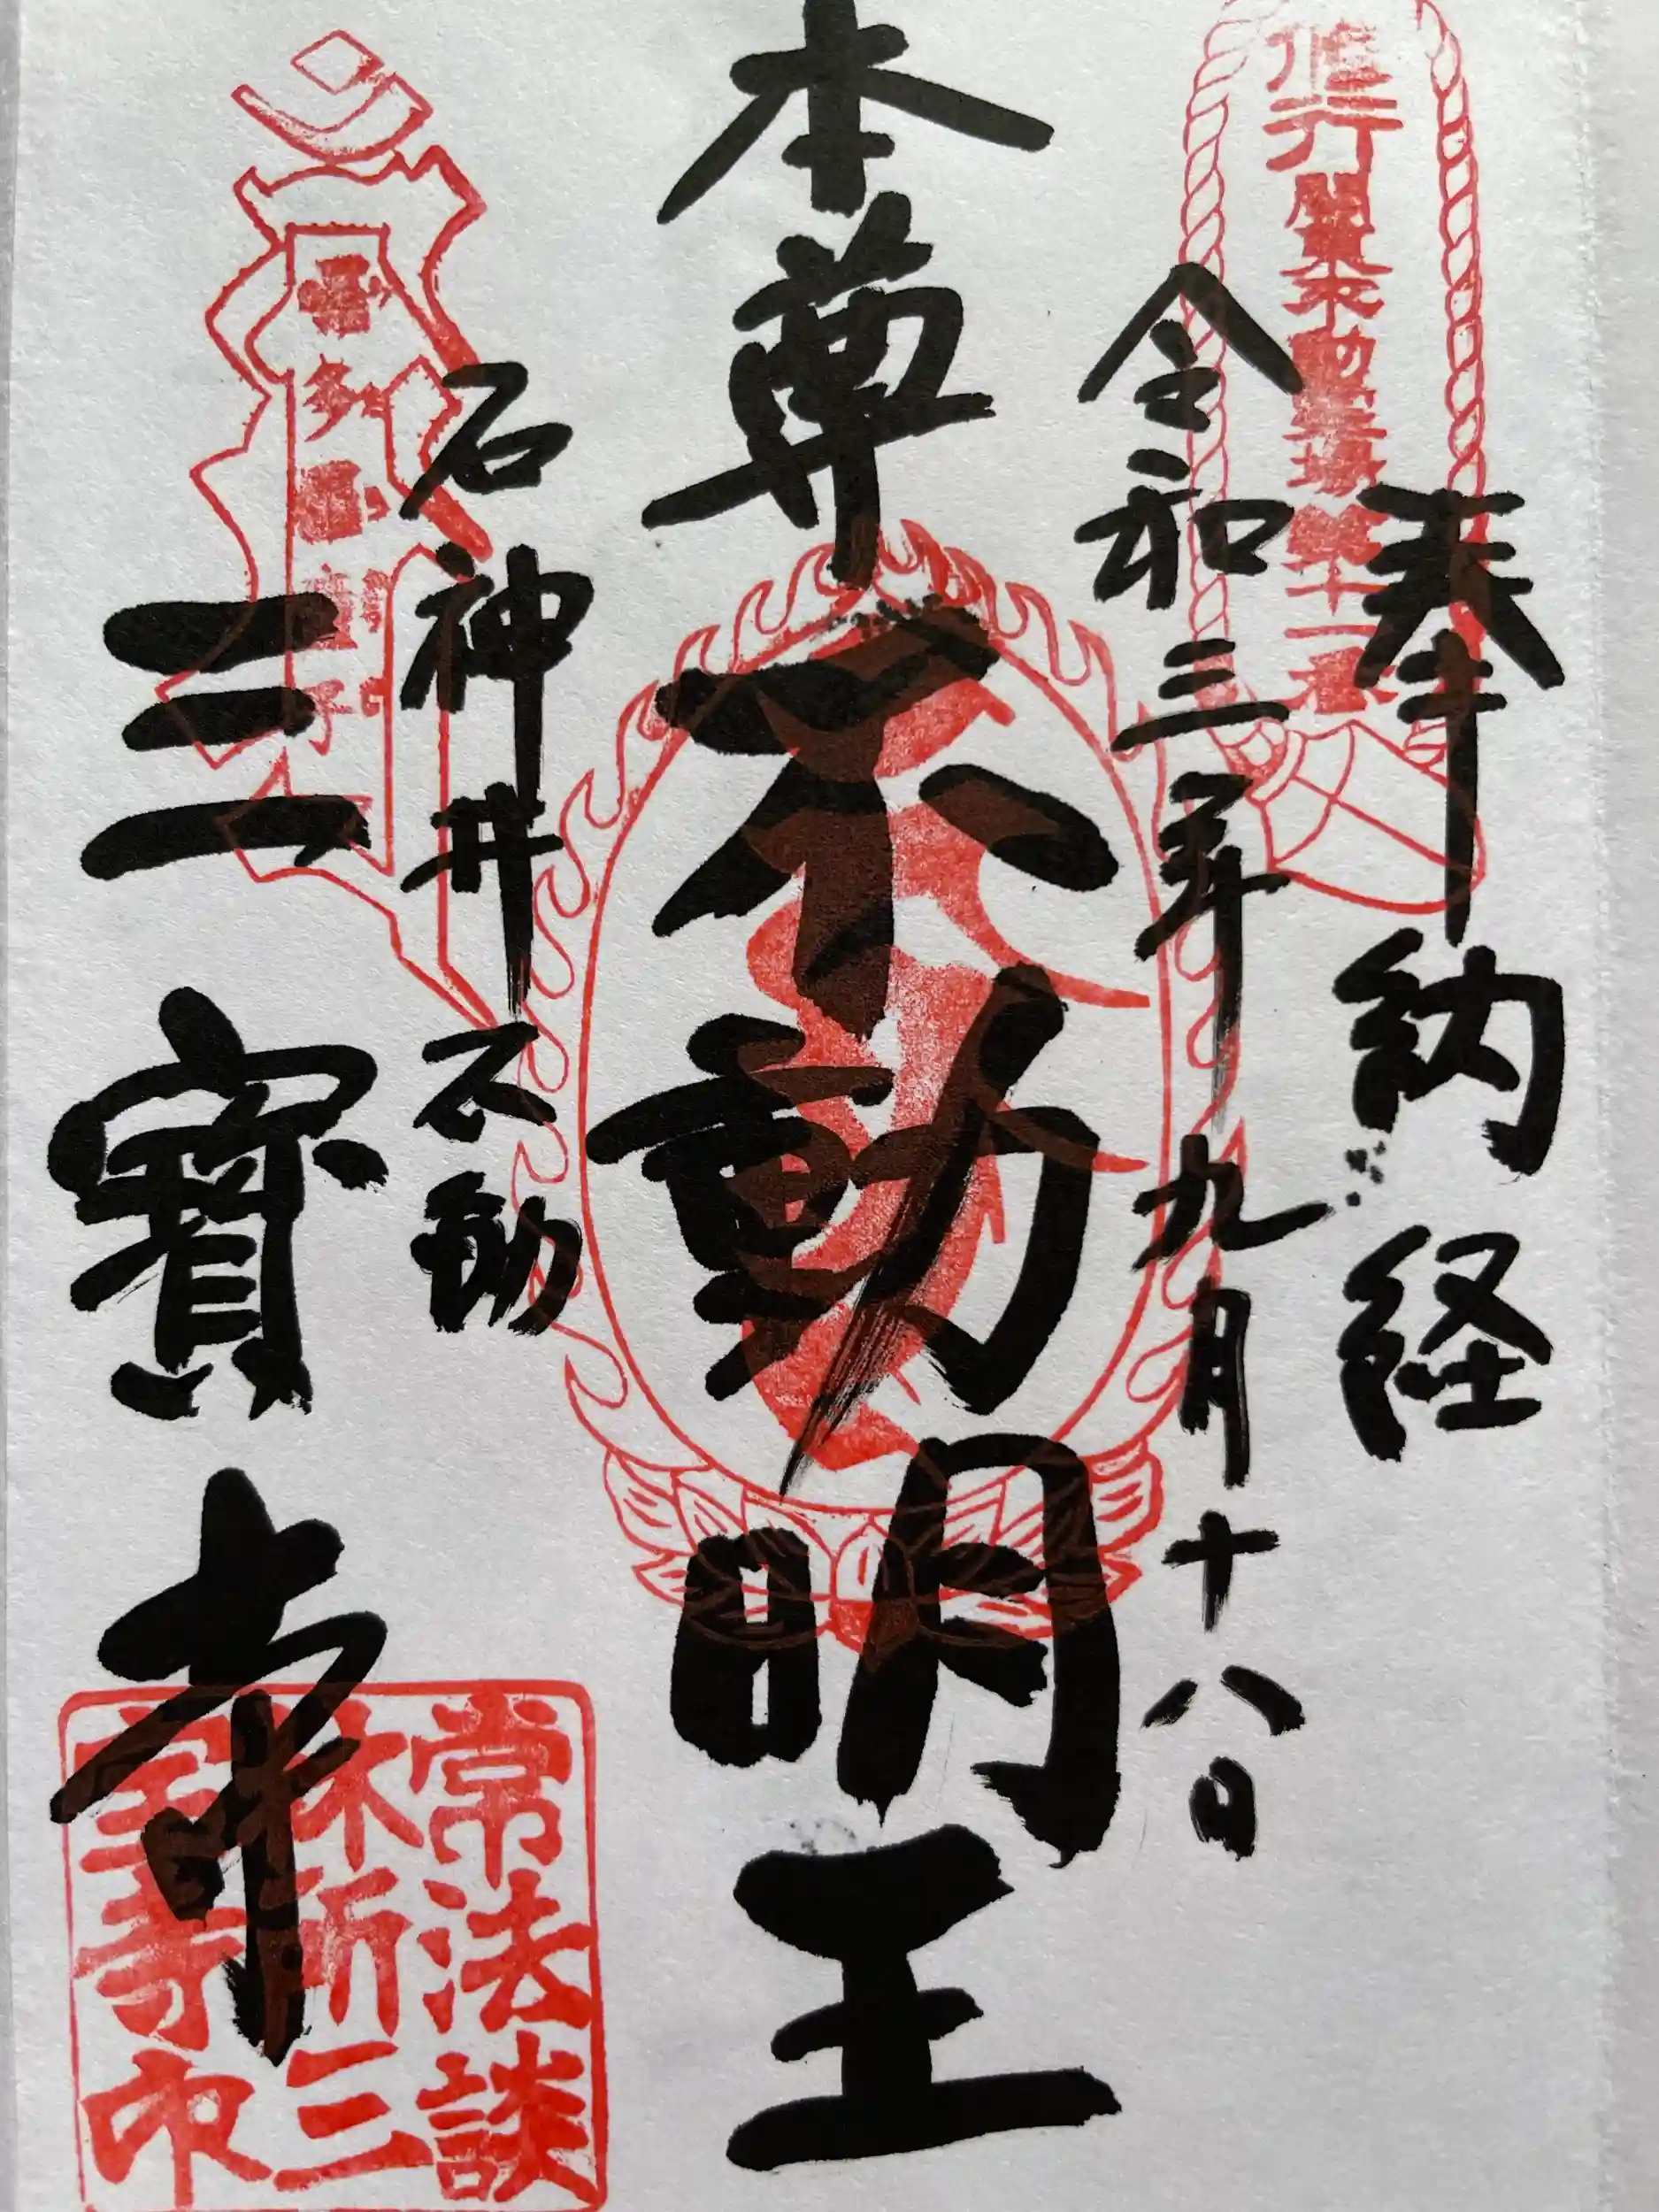 奉納経
修行
関東不動霊場第十一番
令和三年九月十八日
本尊不動明王
石神井不動
三寳寺
常法談
林所三
宝寺印